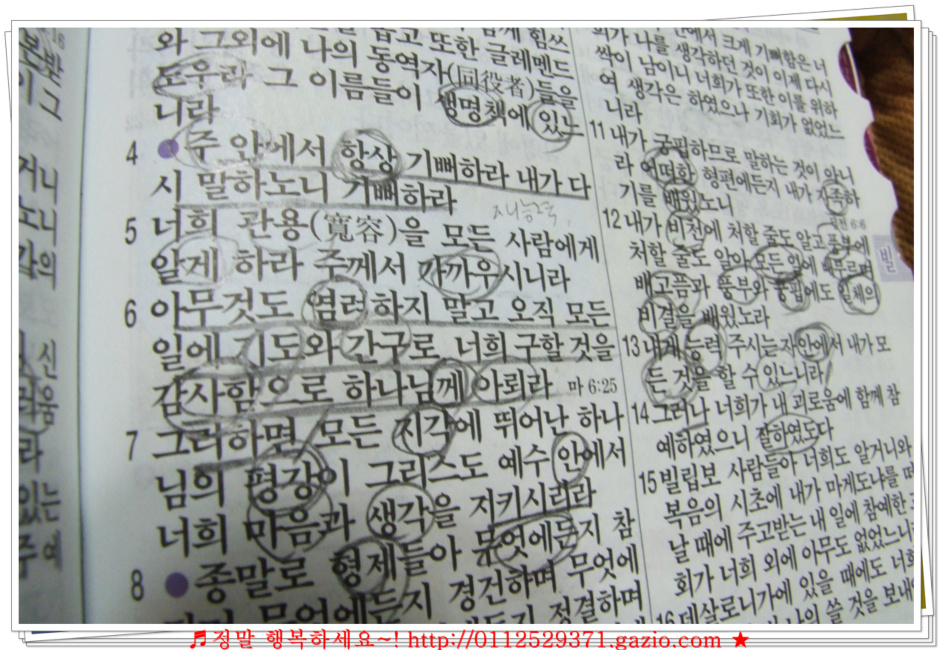 와 그외에 나의 동역자(同役者)들을
도우라 그 이름들이 생명책에 있느
니라
4 주 안에서 항상 기뻐하라 내가 다
시 말하노니 기뻐하라
5 너희 관용(寬容)을 모든 사람에게
알게 하라 주께서 가까우시니라
6 아무것도 염려하지 말고 오직 모든
일에 기도와 간구로 너희 구할 것을
감사함으로 하나님께 아뢰라 마 6:25
7 그리하면 모든 지각에 뛰어난 하나
님의 평강이 그리스도 예수 안에서
너희 마음과 생각을 지키시리라
8 종말로 형제들아 무엇에든지 참
무엇에든지 경건하며 무엇에
정결하며
회가 나를 생각하던 것이 이제 다시
싹이 남이니 너희가 또한 이를 위하
여 생각은 하였으나 기회가 없었느
니라
11 내가 궁핍하므로 말하는 것이 아니
라 어떠한 형편에든지 내가 자족하
기를 배웠노니
12 내가 비천에 처할 줄도 알고 풍부에
처할 줄도 알아 모든 일에 배부르며
배고픔과 풍부와 궁핍에도 일체의
비결을 배웠노라
13 내게 능력 주시는 자 안에서 내가 모
든 것을 할 수 있느니라
14 그러나 너희가 내 괴로움에 함께 참
예하였으니 잘하였도다
15 빌립보 사람들아 너희도 알거니와
복음의 시초에 내가 마게도냐를 떠
날 때에 주고받는 내 일에 참예한
회가 너희 외에 아무도 없었느니
16 데살로니가에 있을 때에도 너희
나의 쓸 것을 보내
빌
♬정말 행복하세요~! http://0112529371.gazio.com ★